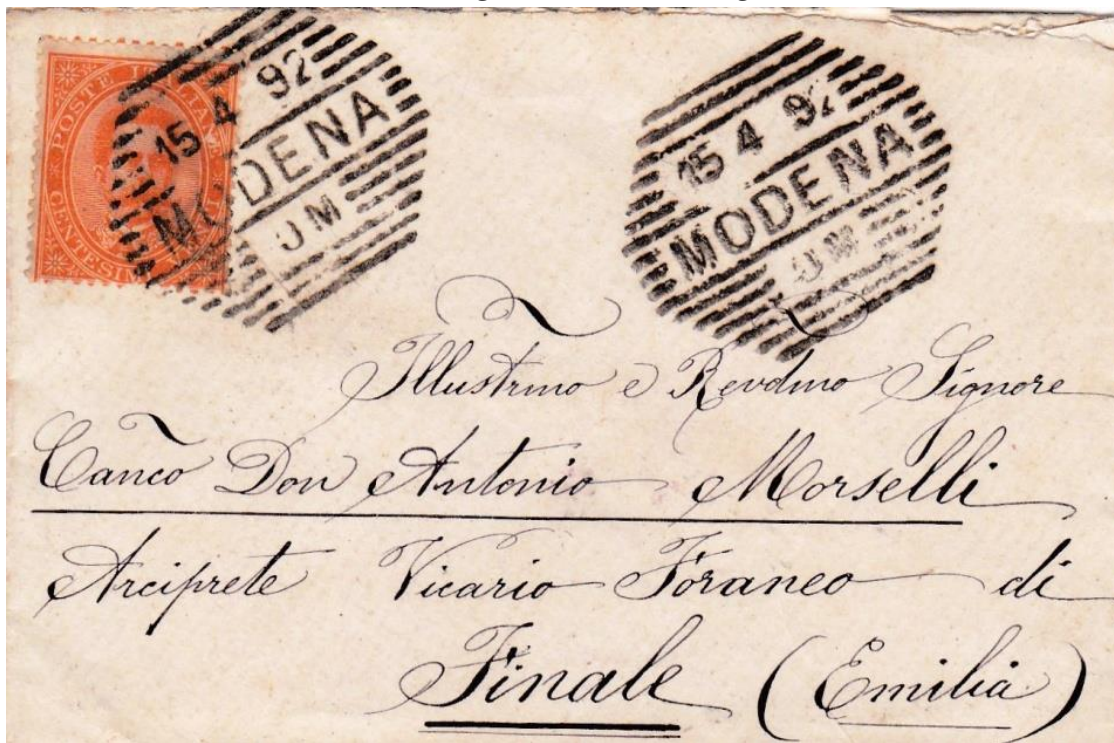 POSTE ITALIANE
15 4 92
MODENA
15 4 92
MODENA
Illustrmo e Revdmo Signore
Canco Don Antonio Morselli
Arciprete Vicario Foraneo di
Finale (Emilia)